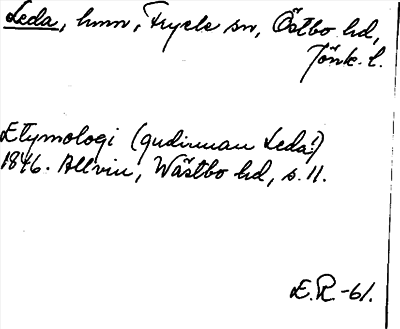 Leda, hmn, Fryele sn, Östbo hd,
Jönk. l.
Etymologi (gudinnan Leda!)
1846. Allvin, Wästbo hd, s. 11.
E.R. -61.